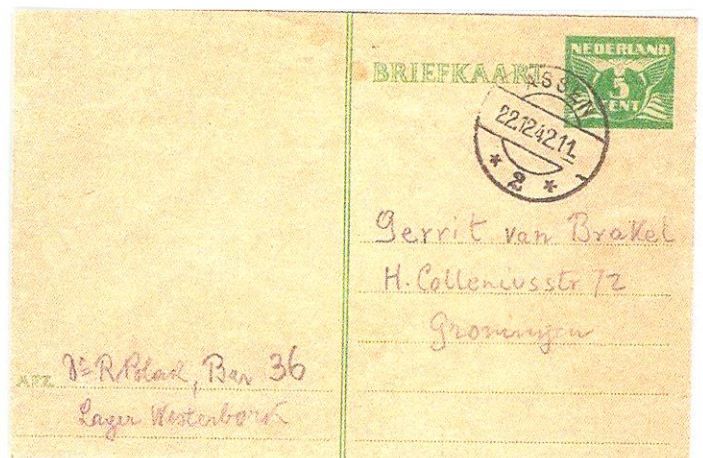 BRIEFKAART
NEDERLAND
5
CENT
ASSEN
22.12.42.11
* 2 *
Gerrit van Brakel
H. Colleniusstr 72
Groningen
AFZ. Dr R Polak, Bar 36
Lager Westerbork